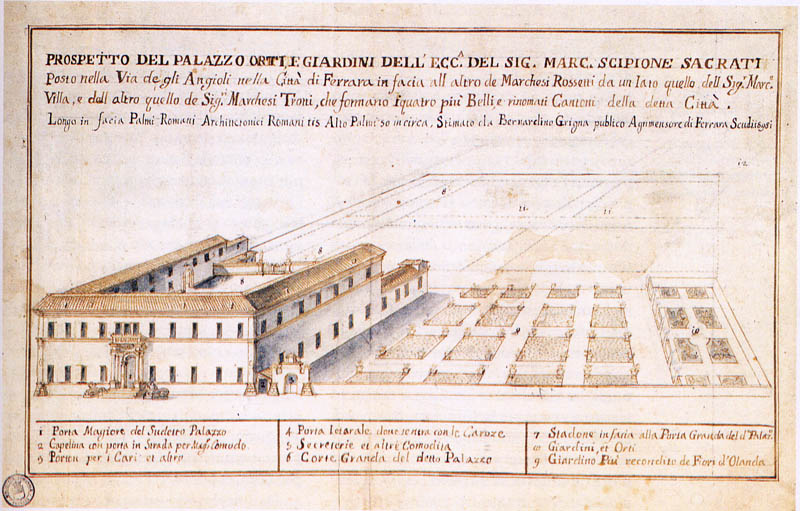 PROSPETTO DEL PALAZZO ORTI, E GIARDINI DELL' ECCA. DEL SIG. MARC. SCIPIONE SACRATI
Posto nella Via de gli Angioli nella Città di Ferrara in facia all altro de Marchesi Rossetti da un lato quello dell Sig. Marc.
Villa, e dall altro quello de Sig. Marchesi Troni, che formano i quatro piu' Belli e rinomati Cantoni della detta Città.
Longo in facia Palmi Romani Architectonici Romani Alto Palmi 50 in circa, Stimato da Bernardino Grigna publico Agrimensore di Ferrara Scudi
12
11 11
8
1 Porta Magiore del Sudetto Palazzo
2 Capellina con porta in Strada per Mag. Comodo
3 Porton per i Cari et altro
4 Porta laterale dove s'entra con le Caroze
5 Secreterie et altri Comodità
6 Corte Granda del detto Palazzo
7 Stadone in facia alla Porta Granda del d. Palaz.
Giardini, et Orti
9 Giardino Più recondito de Fiori d'Olanda